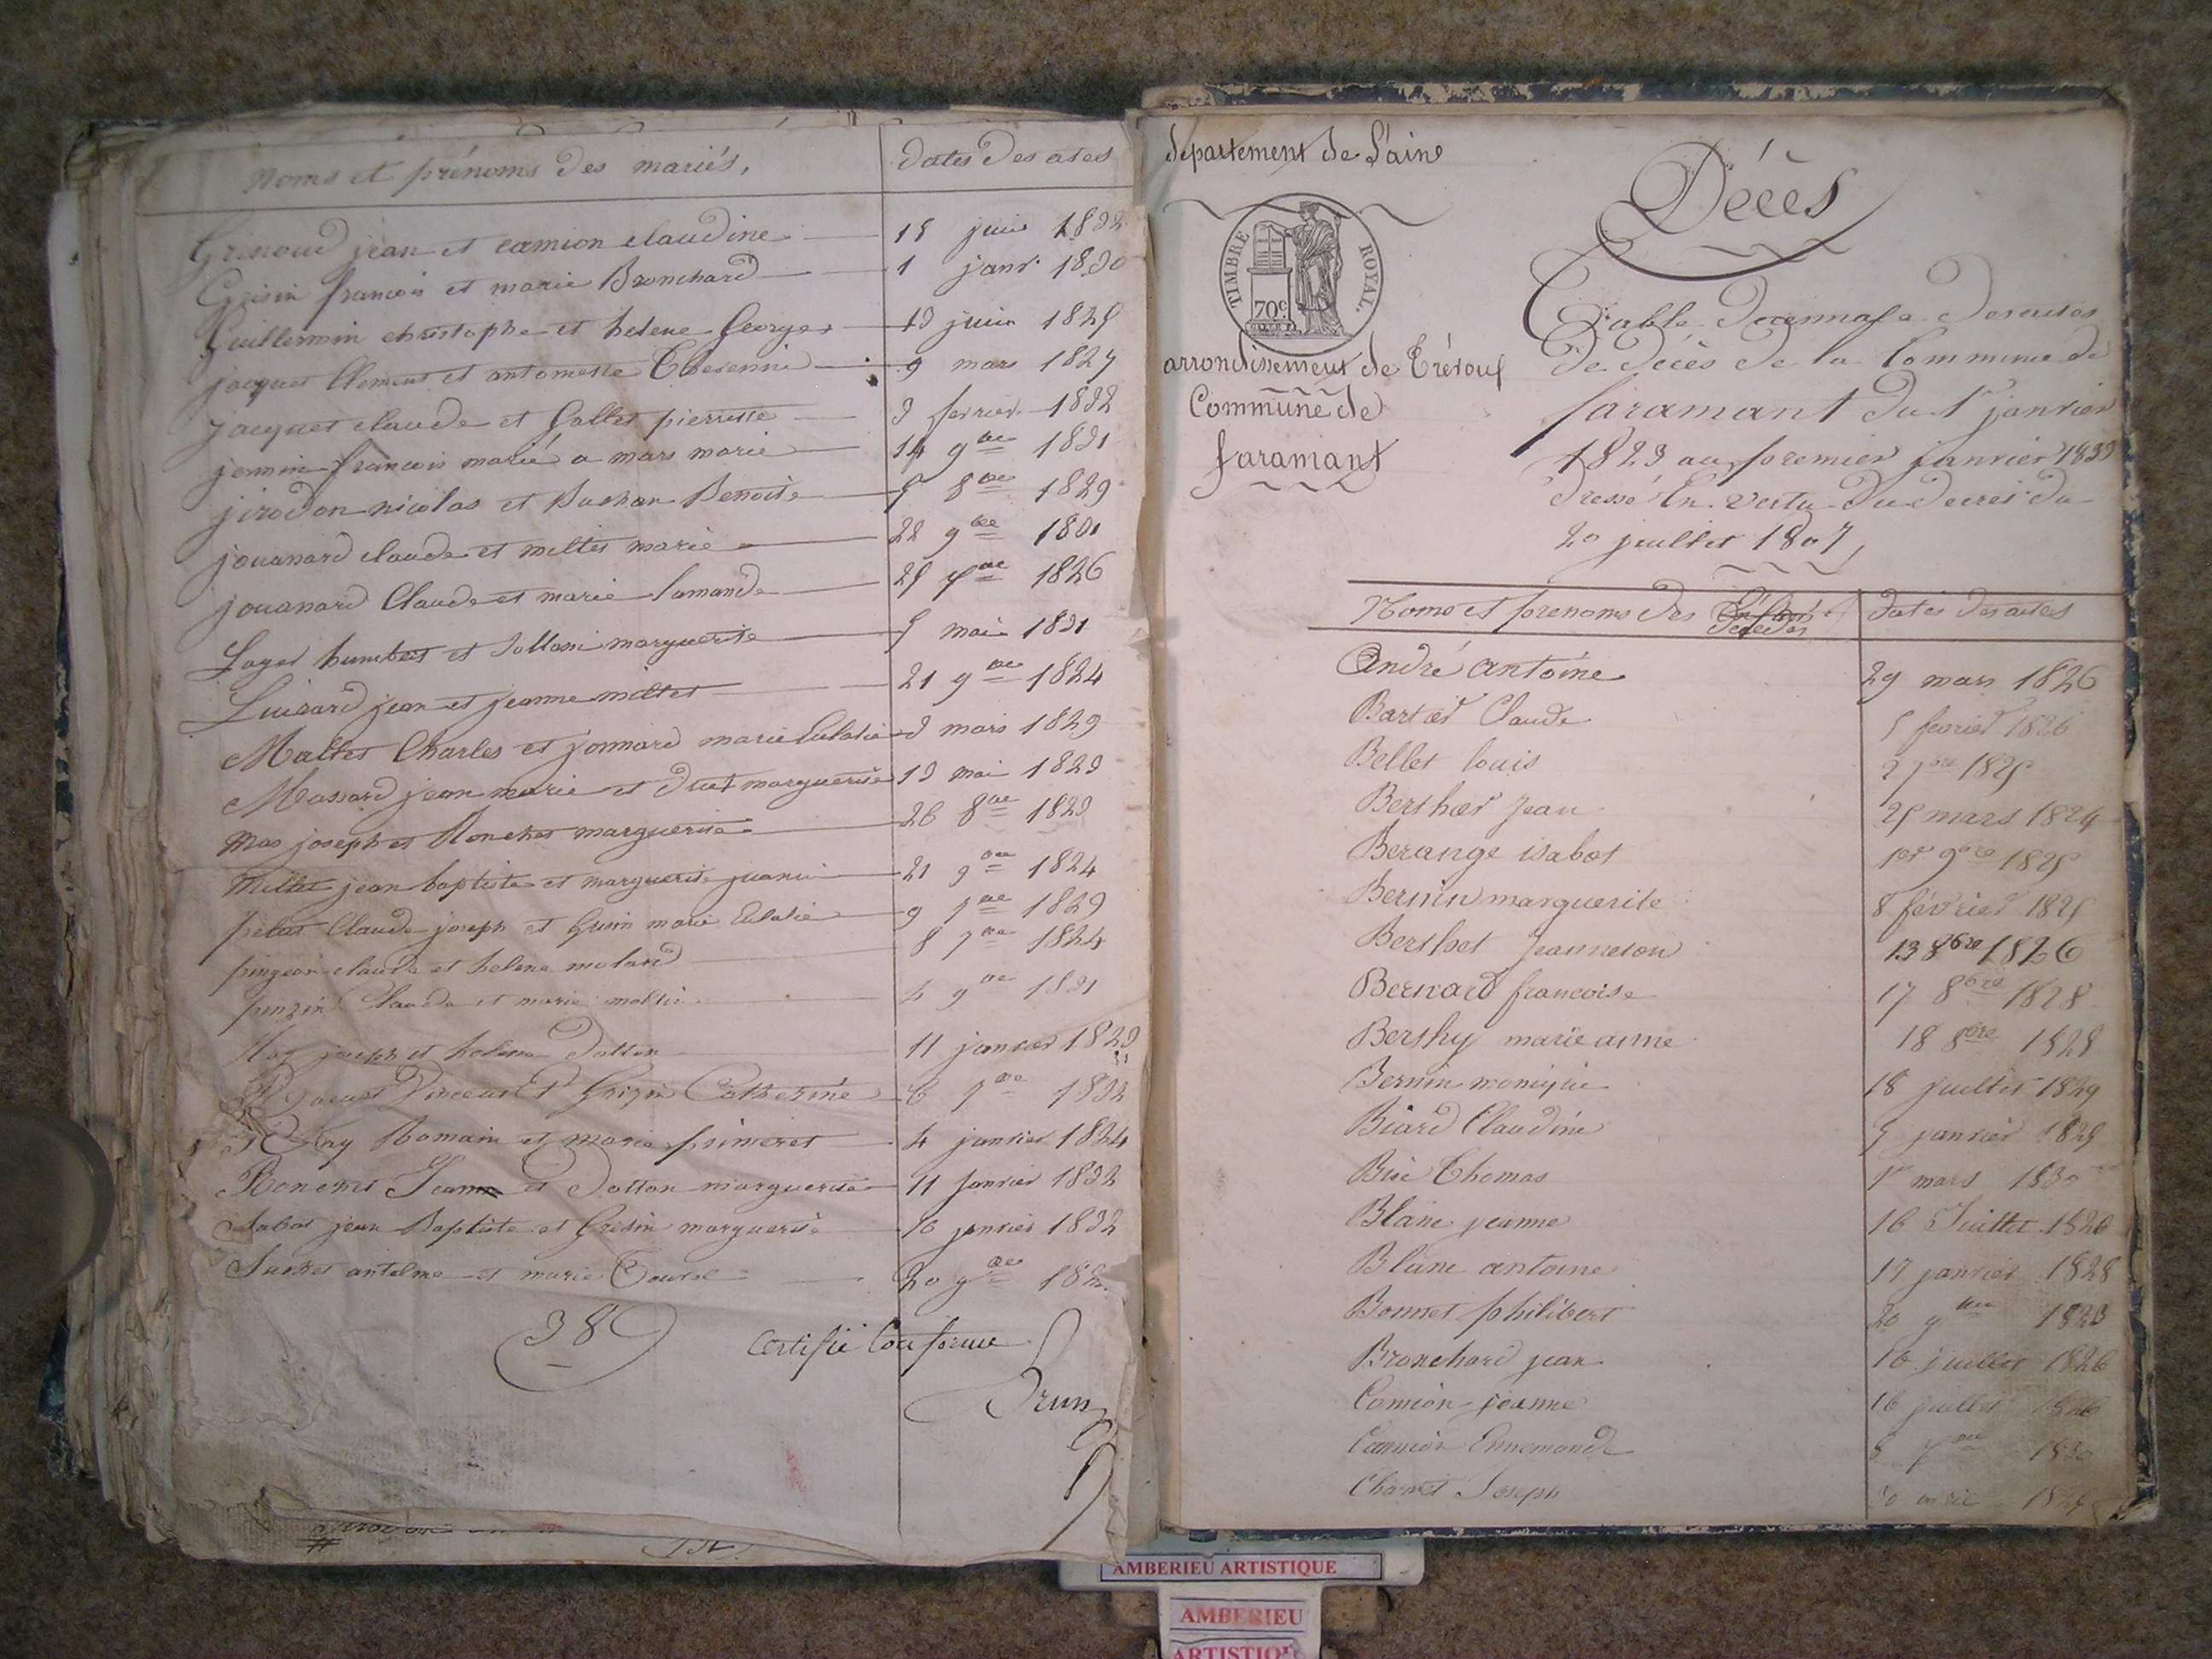 Noms et prénoms des mariés,
dates des actes
Grinoud jean et camion claudine 15 juin 1832
Grisin francois et marie Bronchard 1 janvr 1830
Guillermin christophe et helene Georges 13 juin 1825
jacquet Clement et antoinette Thevenin 9 mars 1827
jacquet claude et Gallet pierrette 3 fevrier 1832
jennin francois marié a mars marie 14 9bre 1831
jirodon nicolas et Benoite 5 8bre 1829
jouanard claude et millet marie 22 9bre
jouanard Claude et marie lamande 25 7bre 1826
Loger humbert et marguerite 5 mai 1831
Luisard jean et jeanne millet 21 9bre 1824
Maltet Charles et jonnard marie Eulalie 3 mars 1829
Massard jean marie et Duct marguerite 13 mai 1823
mas joseph et Ronchet marguerite 26 8bre 1823
Millet jean baptiste et marguerite juanin 21 9bre 1824
pelus Claude joseph et Guin marie Eulalie 9 7bre 1829
pingeon claude et helene molard 8 7bre 1824
pinzin Claude et marie 4 9bre 1831
joseph et helene Dotton 11 janvier 1823
Vincent Et Grizin Catherine 6 7bre 1832
Rey Romain et marie primeret 4 janvier 1824
Ronchet Jean et Dotton marguerite 11 janvier 1832
Sabot jean Baptiste et Grisin marguerite 16 janvier 1832
Suchet antelme et marie 20 9bre
38
Certifié Conforme
Brun
département de L'ain
TIMBRE ROYAL.
70c
arrondissement de Trévoux
Commune de
faramant
Décès
Table Décennale des actes
de décès de la Commune de
faramant du 1r janvier
1823 au premier janvier 1833
Dressé En vertu du decret du
20 juillet 1807,
Noms et prenoms des décédés
dates des actes
André antoine 29 mars 1826
Bartet Claude 5 fevrier 1826
Bellet louis 2 7bre 1825
Berthet Jean 25 mars 1824
Berange isabot 1er 9bre 1825
Bernin marguerite 8 février 1825
Berthet Jeanneton 13 8bre 1826
Bernard francoise 17 8bre 1828
Berthy marie anne 18 8bre 1828
Bernin monique 18 juillet 1829
Biard Claudine 5 janvier 1825
Bise Thomas 1r mars 1830
Blanc jeanne 16 Juillet 1826
Blanc antoine 17 janvier 1828
Bonnet philibert 20 9bre 1823
Bronchard jean 16 juillet 1826
Camion jeanne 16 juillet 1826
Camion Ennemonde 8 7bre 1830
Joseph
AMBERIEU ARTISTIQUE
AMBERIEU
ARTISTIQUE